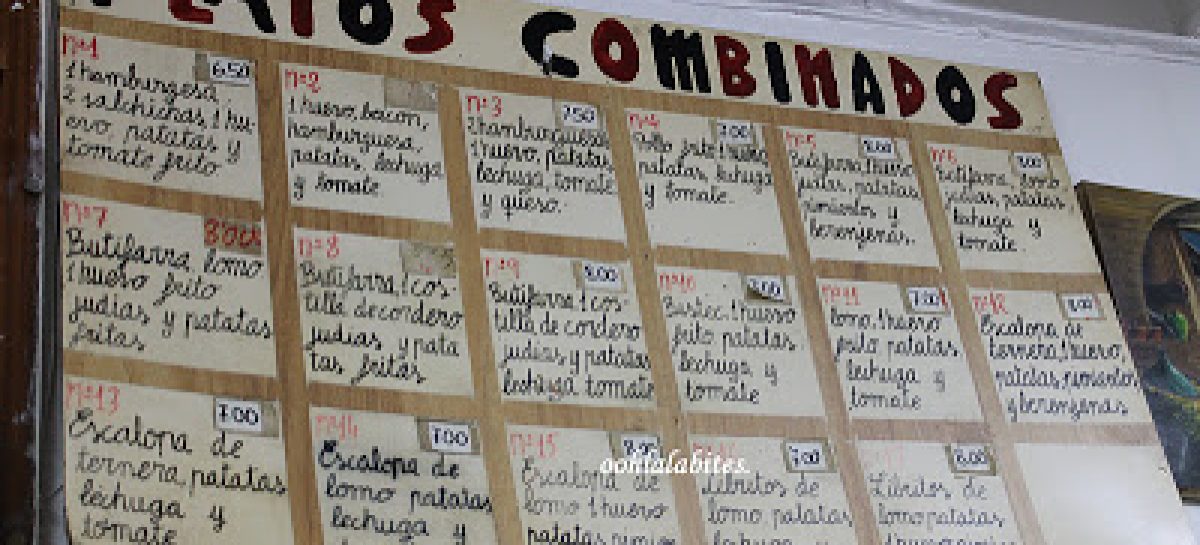 PLATOS COMBINADOS
nº1 6.50
1 hamburgesa
2 salchichas, 1 hu-
evo, patatas y
tomate frito
nº2
1 huevo, bacon,
hamburguesa
patatas, lechuga
y tomate.
nº3 7.50
1 huevo, patatas
lechuga, tomate
y queso.
nº4 7.00
Pollo frito, 1 huevo
patatas, lechuga
y tomate.
nº5 8.00
Butifarra, 1 huevo
judias, patatas
pimientos y
berenjenas.
nº6 8.00
Butifarra, lomo
judias, patatas,
lechuga y
tomate.
nº7
Butifarra, lomo
1 huevo frito
judias y patatas
fritas
nº8
Butifarra, 1 cos-
tilla de cordero
judias y pata
tas fritas
nº9 8.00
Butifarra, 1 cos-
tilla de cordero
judias y patatas
lechuga tomate
nº10
Bistec, 1 huevo
frito patatas
lechuga y
tomate
nº11 7.00
lomo, 1 huevo
frito patatas
lechuga y
tomate
nº12 8.00
Escalopa de
ternera, 1 huevo,
patatas, pimientos
y berenjenas
nº13 7.00
Escalopa de
ternera, patatas
lechuga y
tomate
nº14 7.00
Escalopa de
lomo patatas
lechuga y
nº15 8.00
Escalopa de
lomo 1 huevo
patatas
7.00
Libritos de
lomo, patatas
lechuga y
8.00
Libritos de
lomo patatas
1 huevo
oohlalabites.